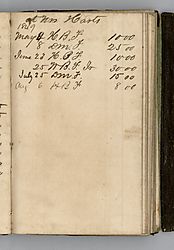 at Mrs Harts
1859
May 4 H. B. F. 10 00
8 D M F. 25 00
June 23 H. B F 10 00
25 W B. F. Jr 30 00
July 25 D M F. 15 00
Aug 6 H B F 8 00